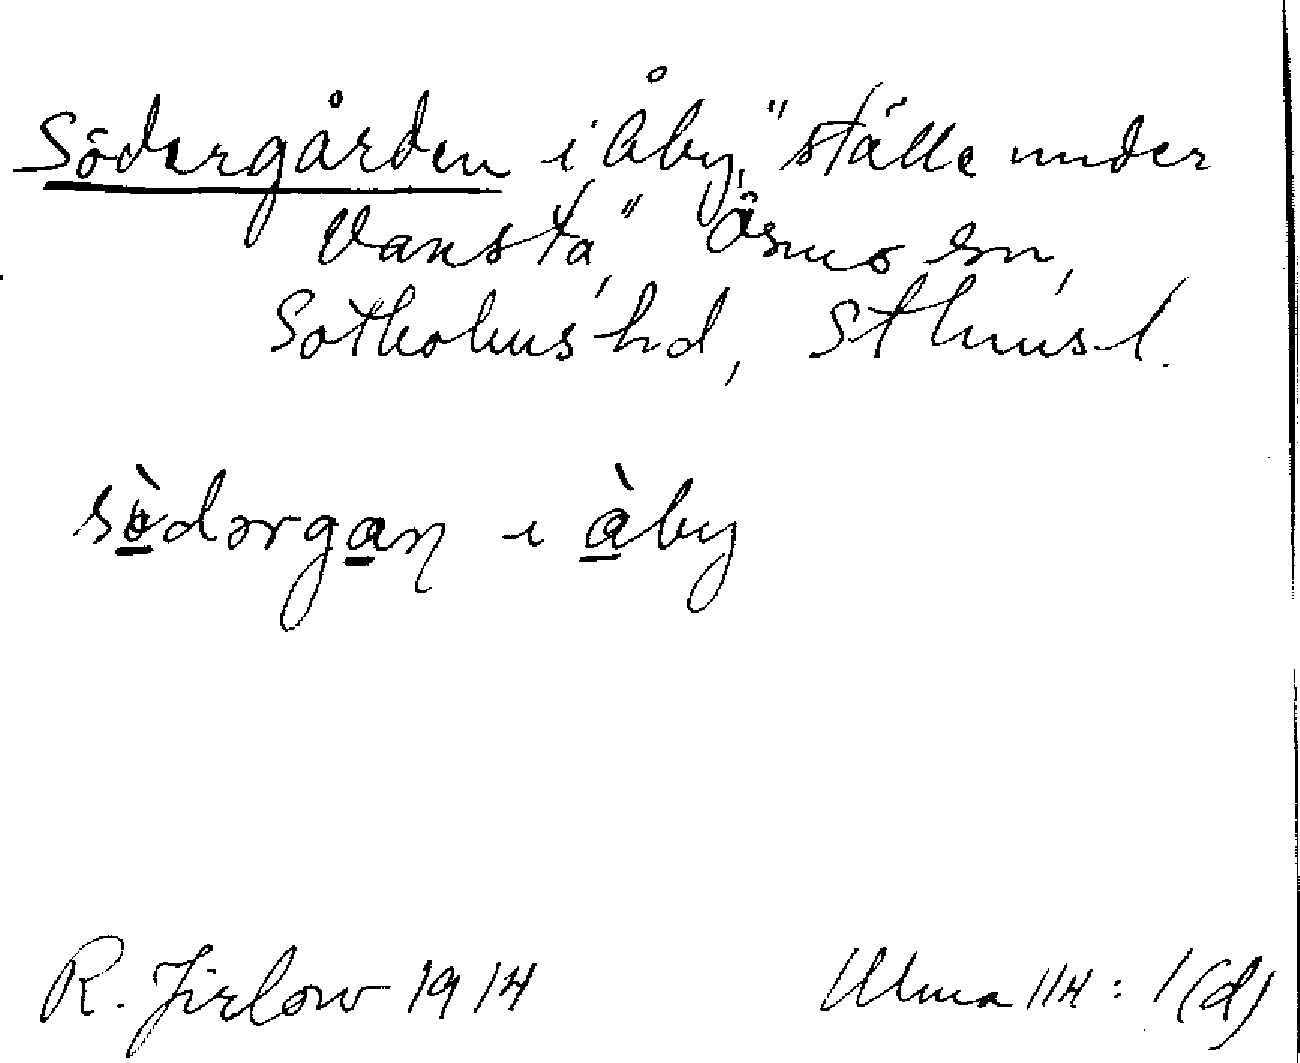 Södergården i Åby, "ställe under
Vansta," Ösmo sn,
Sotholms hd, Sthms l.
sö̀dərgaɳ i àby
R. Jirlow 1914 Ulma 114:1(d)